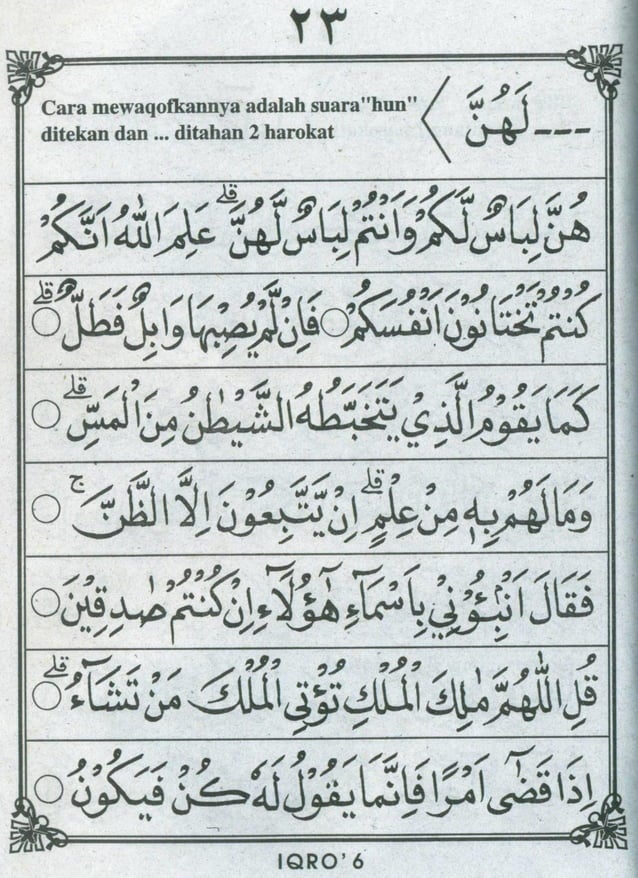 ٢٣
Cara mewaqofkannya adalah suara"hun"
ditekan dan ... ditahan 2 harokat
--- لَهُنَّ
هُنَّ لِبَاسٌ لَّكُمْ وَاَنْتُمْ لِبَاسٌ لَّهُنَّ ۗ عَلِمَ اللّٰهُ اَنَّكُمْ
كُنْتُمْ تَخْتَانُوْنَ اَنْفُسَكُمْ ○ فَاِنْ لَّمْ يُصِبْهَا وَابِلٌ فَطَلٌّ ۗ ○
كَمَا يَقُوْمُ الَّذِيْ يَتَخَبَّطُهُ الشَّيْطٰنُ مِنَ الْمَسِّ ۗ ○
وَمَا لَهُمْ بِهٖ مِنْ عِلْمٍ ۗ اِنْ يَّتَّبِعُوْنَ اِلَّا الظَّنَّ ۚ ○
فَقَالَ اَنْبِـُٔوْنِيْ بِاَسْمَآءِ هٰٓؤُلَآءِ اِنْ كُنْتُمْ صٰدِقِيْنَ ○
قُلِ اللّٰهُمَّ مٰلِكَ الْمُلْكِ تُؤْتِى الْمُلْكَ مَنْ تَشَآءُ ۗ ○
اِذَا قَضٰٓى اَمْرًا فَاِنَّمَا يَقُوْلُ لَهٗ كُنْ فَيَكُوْنُ ○
IQRO'6